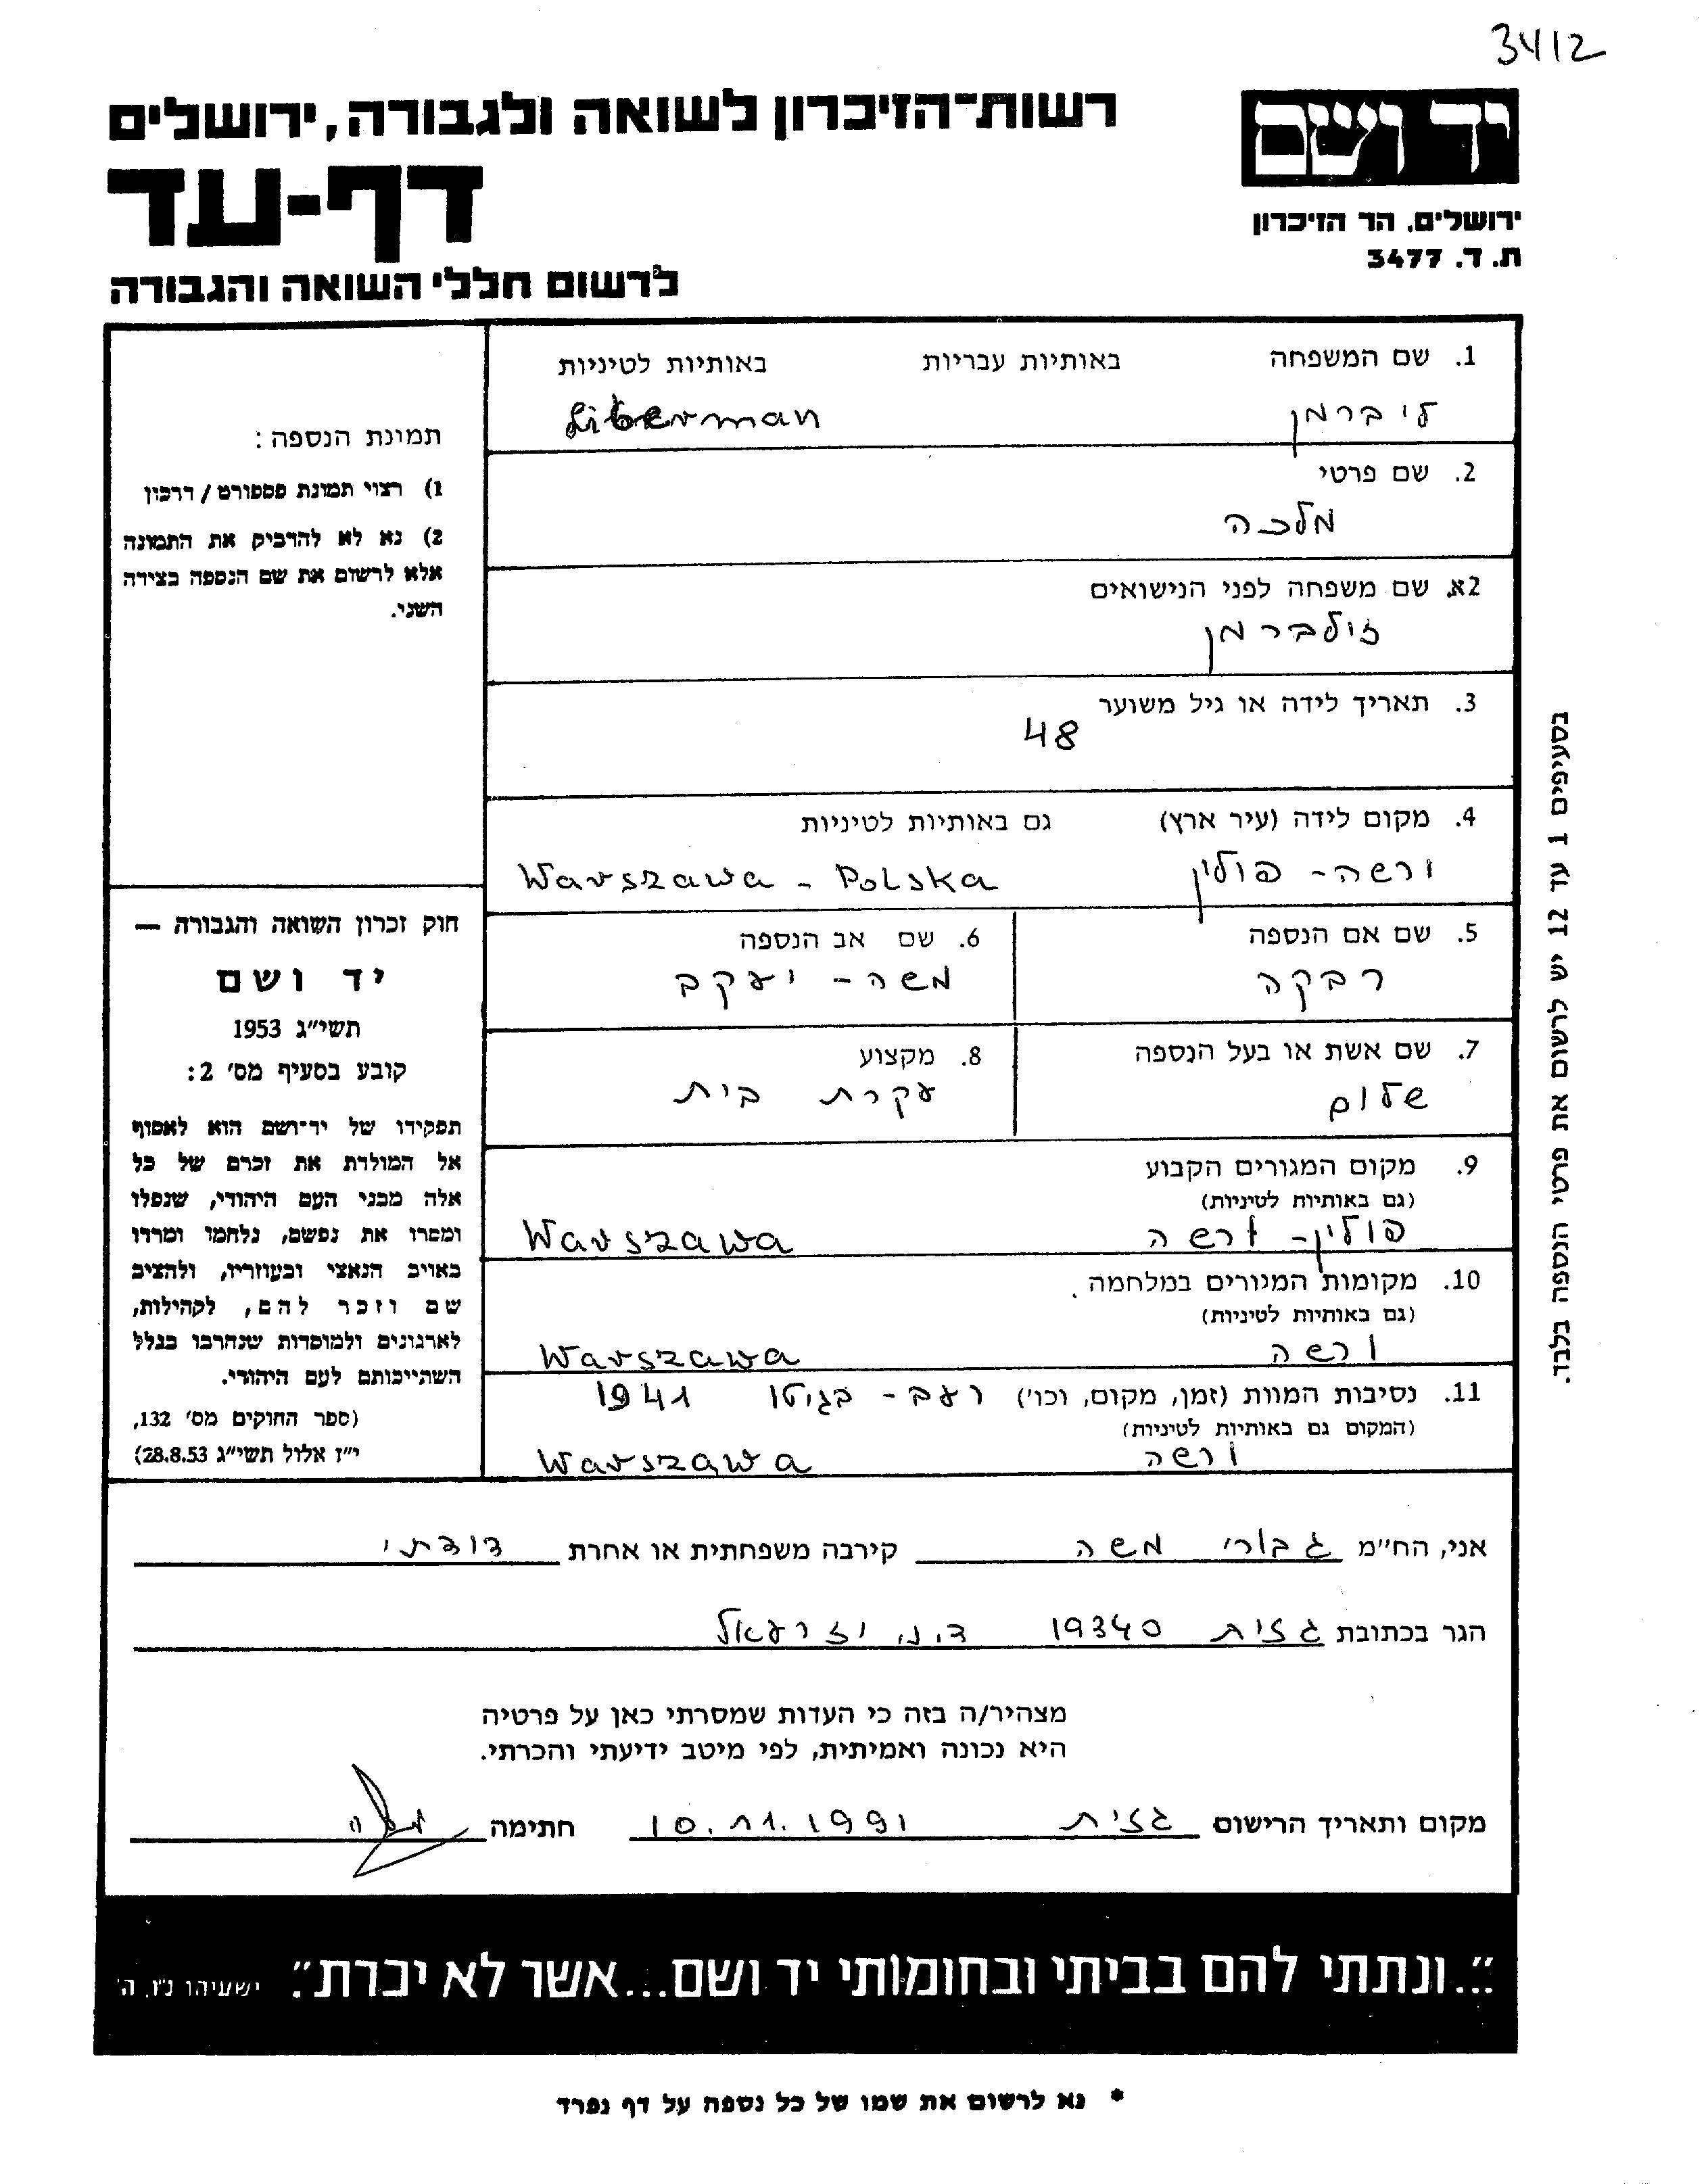 3412
יד ושם
ירושלים, הר הזיכרון
ת. ד. 3477
רשות-הזיכרון לשואה ולגבורה, ירושלים
דף-עד
לרשום חללי השואה והגבורה
1. שם המשפחה באותיות עבריות באותיות לטיניות
ליברמן Liberman
2. שם פרטי
מלכה
2א. שם משפחה לפני הנישואים
זילברמן
3. תאריך לידה או גיל משוער
48
4. מקום לידה (עיר ארץ) גם באותיות לטיניות
ורשה - פולין Warszawa - Polska
5. שם אם הנספה 6. שם אב הנספה
רבקה משה - יעקב
7. שם אשת או בעל הנספה 8. מקצוע
שלום עקרת בית
9. מקום המגורים הקבוע
(גם באותיות לטיניות)
פולין - ורשה Warszawa
10. מקומות המגורים במלחמה
(גם באותיות לטיניות)
ורשה Warszawa
11. נסיבות המוות (זמן, מקום, וכו') רעב - בגיטו 1941
(המקום גם באותיות לטיניות)
ורשה Warszawa
תמונת הנספה:
1) רצוי תמונת פספורט / דרכון
2) נא לא להדביק את התמונה
אלא לרשום את שם הנספה בצידה
השני.
חוק זכרון השואה והגבורה —
יד ושם
תשי"ג 1953
קובע בסעיף מס' 2:
תפקידו של יד-ושם הוא לאסוף
אל המולדת את זכרם של כל
אלה מבני העם היהודי, שנפלו
ומסרו את נפשם, נלחמו ומרדו
באויב הנאצי ובעוזריו, ולהציב
שם וזכר להם, לקהילות,
לארגונים ולמוסדות שנחרבו בגלל
השתייכותם לעם היהודי.
(ספר החוקים מס' 132,
י"ז אלול תשי"ג 28.8.53)
בסעיפים 1 עד 12 יש לרשום את פרטי הנספה בלבד.
אני, הח"מ גבורי משה קירבה משפחתית או אחרת דודתי
הגר בכתובת גזית 19340 ד.נ. יזרעאל
מצהיר/ה בזה כי העדות שמסרתי כאן על פרטיה
היא נכונה ואמיתית, לפי מיטב ידיעתי והכרתי.
מקום ותאריך הרישום גזית 10.11.1991 חתימה
"...ונתתי להם בביתי ובחומותי יד ושם...אשר לא יכרת". ישעיהו נ"ו, ה'
* נא לרשום את שמו של כל נספה על דף נפרד